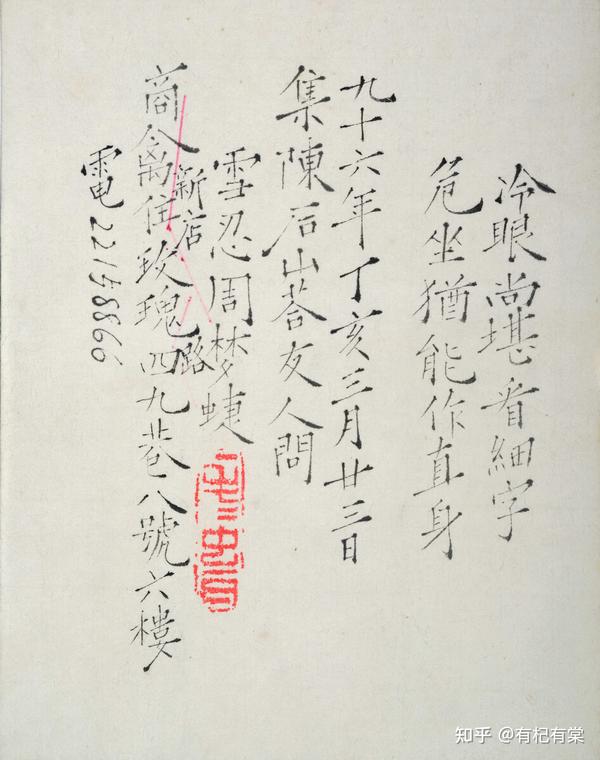 冷眼尚堪看細字
危坐猶能作直身
九十六年丁亥三月廿三日
集陳石山荅友人問
雪忍周梦蜨
商禽住玫瑰四九巷八號六樓
新店
路
電22158866
知乎 @有杞有棠